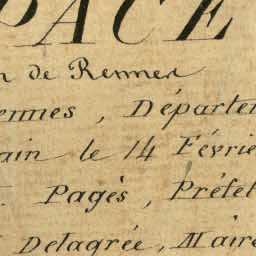 PACE
n de Rennes
ennes, Départe
ain le 14 Févrie
. Pagès, Préfet
Delagrée, Maire